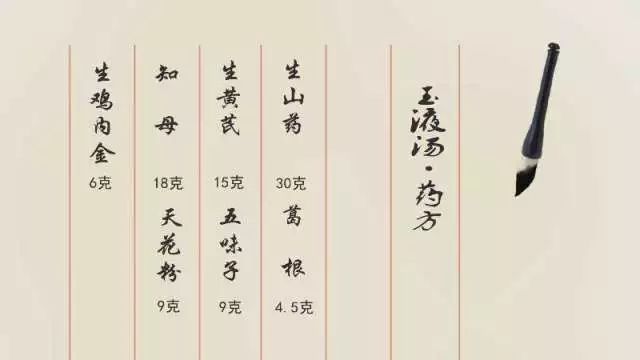 玉液汤·药方
生山药
30克
葛根
4.5克
生黄芪
15克
五味子
9克
知母
18克
天花粉
9克
生鸡内金
6克